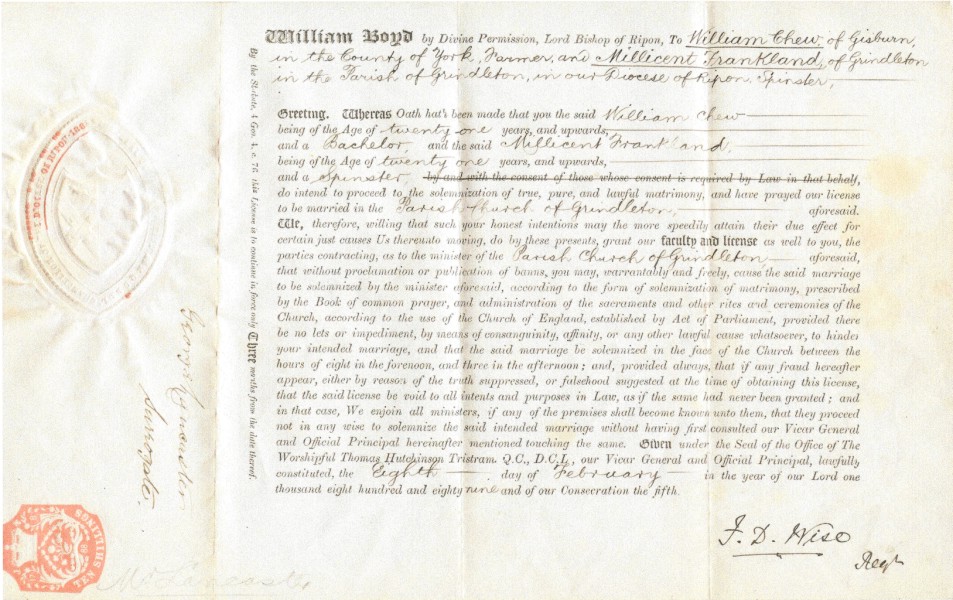 William Boyd by Divine Permission, Lord Bishop of Ripon, To William Chew, of Gisburn,
in the County of York, Farmer, and Millicent Frankland, of Grindleton
in the Parish of Grindleton, in our Diocese of Ripon, Spinster,
Greeting. Whereas Oath hath been made that you the said William Chew
being of the Age of twenty one years, and upwards,
and a Bachelor, and the said Millicent Frankland,
being of the Age of twenty one years, and upwards,
and a Spinster by and with the consent of those whose consent is required by Law in that behalf,
do intend to proceed to the solemnization of true, pure, and lawful matrimony, and have prayed our license
to be married in the Parish Church of Grindleton, aforesaid.
We, therefore, willing that such your honest intentions may the more speedily attain their due effect for
certain just causes Us thereunto moving, do by these presents, grant our faculty and license as well to you, the
parties contracting, as to the minister of the Parish Church of Grindleton aforesaid,
that without proclamation or publication of banns, you may, warrantably and freely, cause the said marriage
to be solemnized by the minister aforesaid, according to the form of solemnization of matrimony, prescribed
by the Book of common prayer, and administration of the sacraments and other rites and ceremonies of the
Church, according to the use of the Church of England, established by Act of Parliament, provided there
be no lets or impediment, by means of consanguinity, affinity, or any other lawful cause whatsoever, to hinder
your intended marriage, and that the said marriage be solemnized in the face of the Church between the
hours of eight in the forenoon, and three in the afternoon; and, provided always, that if any fraud hereafter
appear, either by reason of the truth suppressed, or falsehood suggested at the time of obtaining this license,
that the said license be void to all intents and purposes in Law, as if the same had never been granted; and
in that case, We enjoin all ministers, if any of the premises shall become known unto them, that they proceed
not in any wise to solemnize the said intended marriage without having first consulted our Vicar General
and Official Principal hereinafter mentioned touching the same. Given under the Seal of the Office of The
Worshipful Thomas Hutchinson Tristram, Q.C., D.C.L., our Vicar General and Official Principal, lawfully
constituted, the Eighth day of February in the year of our Lord one
thousand eight hundred and eighty nine and of our Consecration the fifth.
F. D. Wise
Regr
By the Statute, 4 Geo. 4. c. 76, this License is to continue in force only Three months from the date thereof.
Surrogate.
TEN SHILLINGS